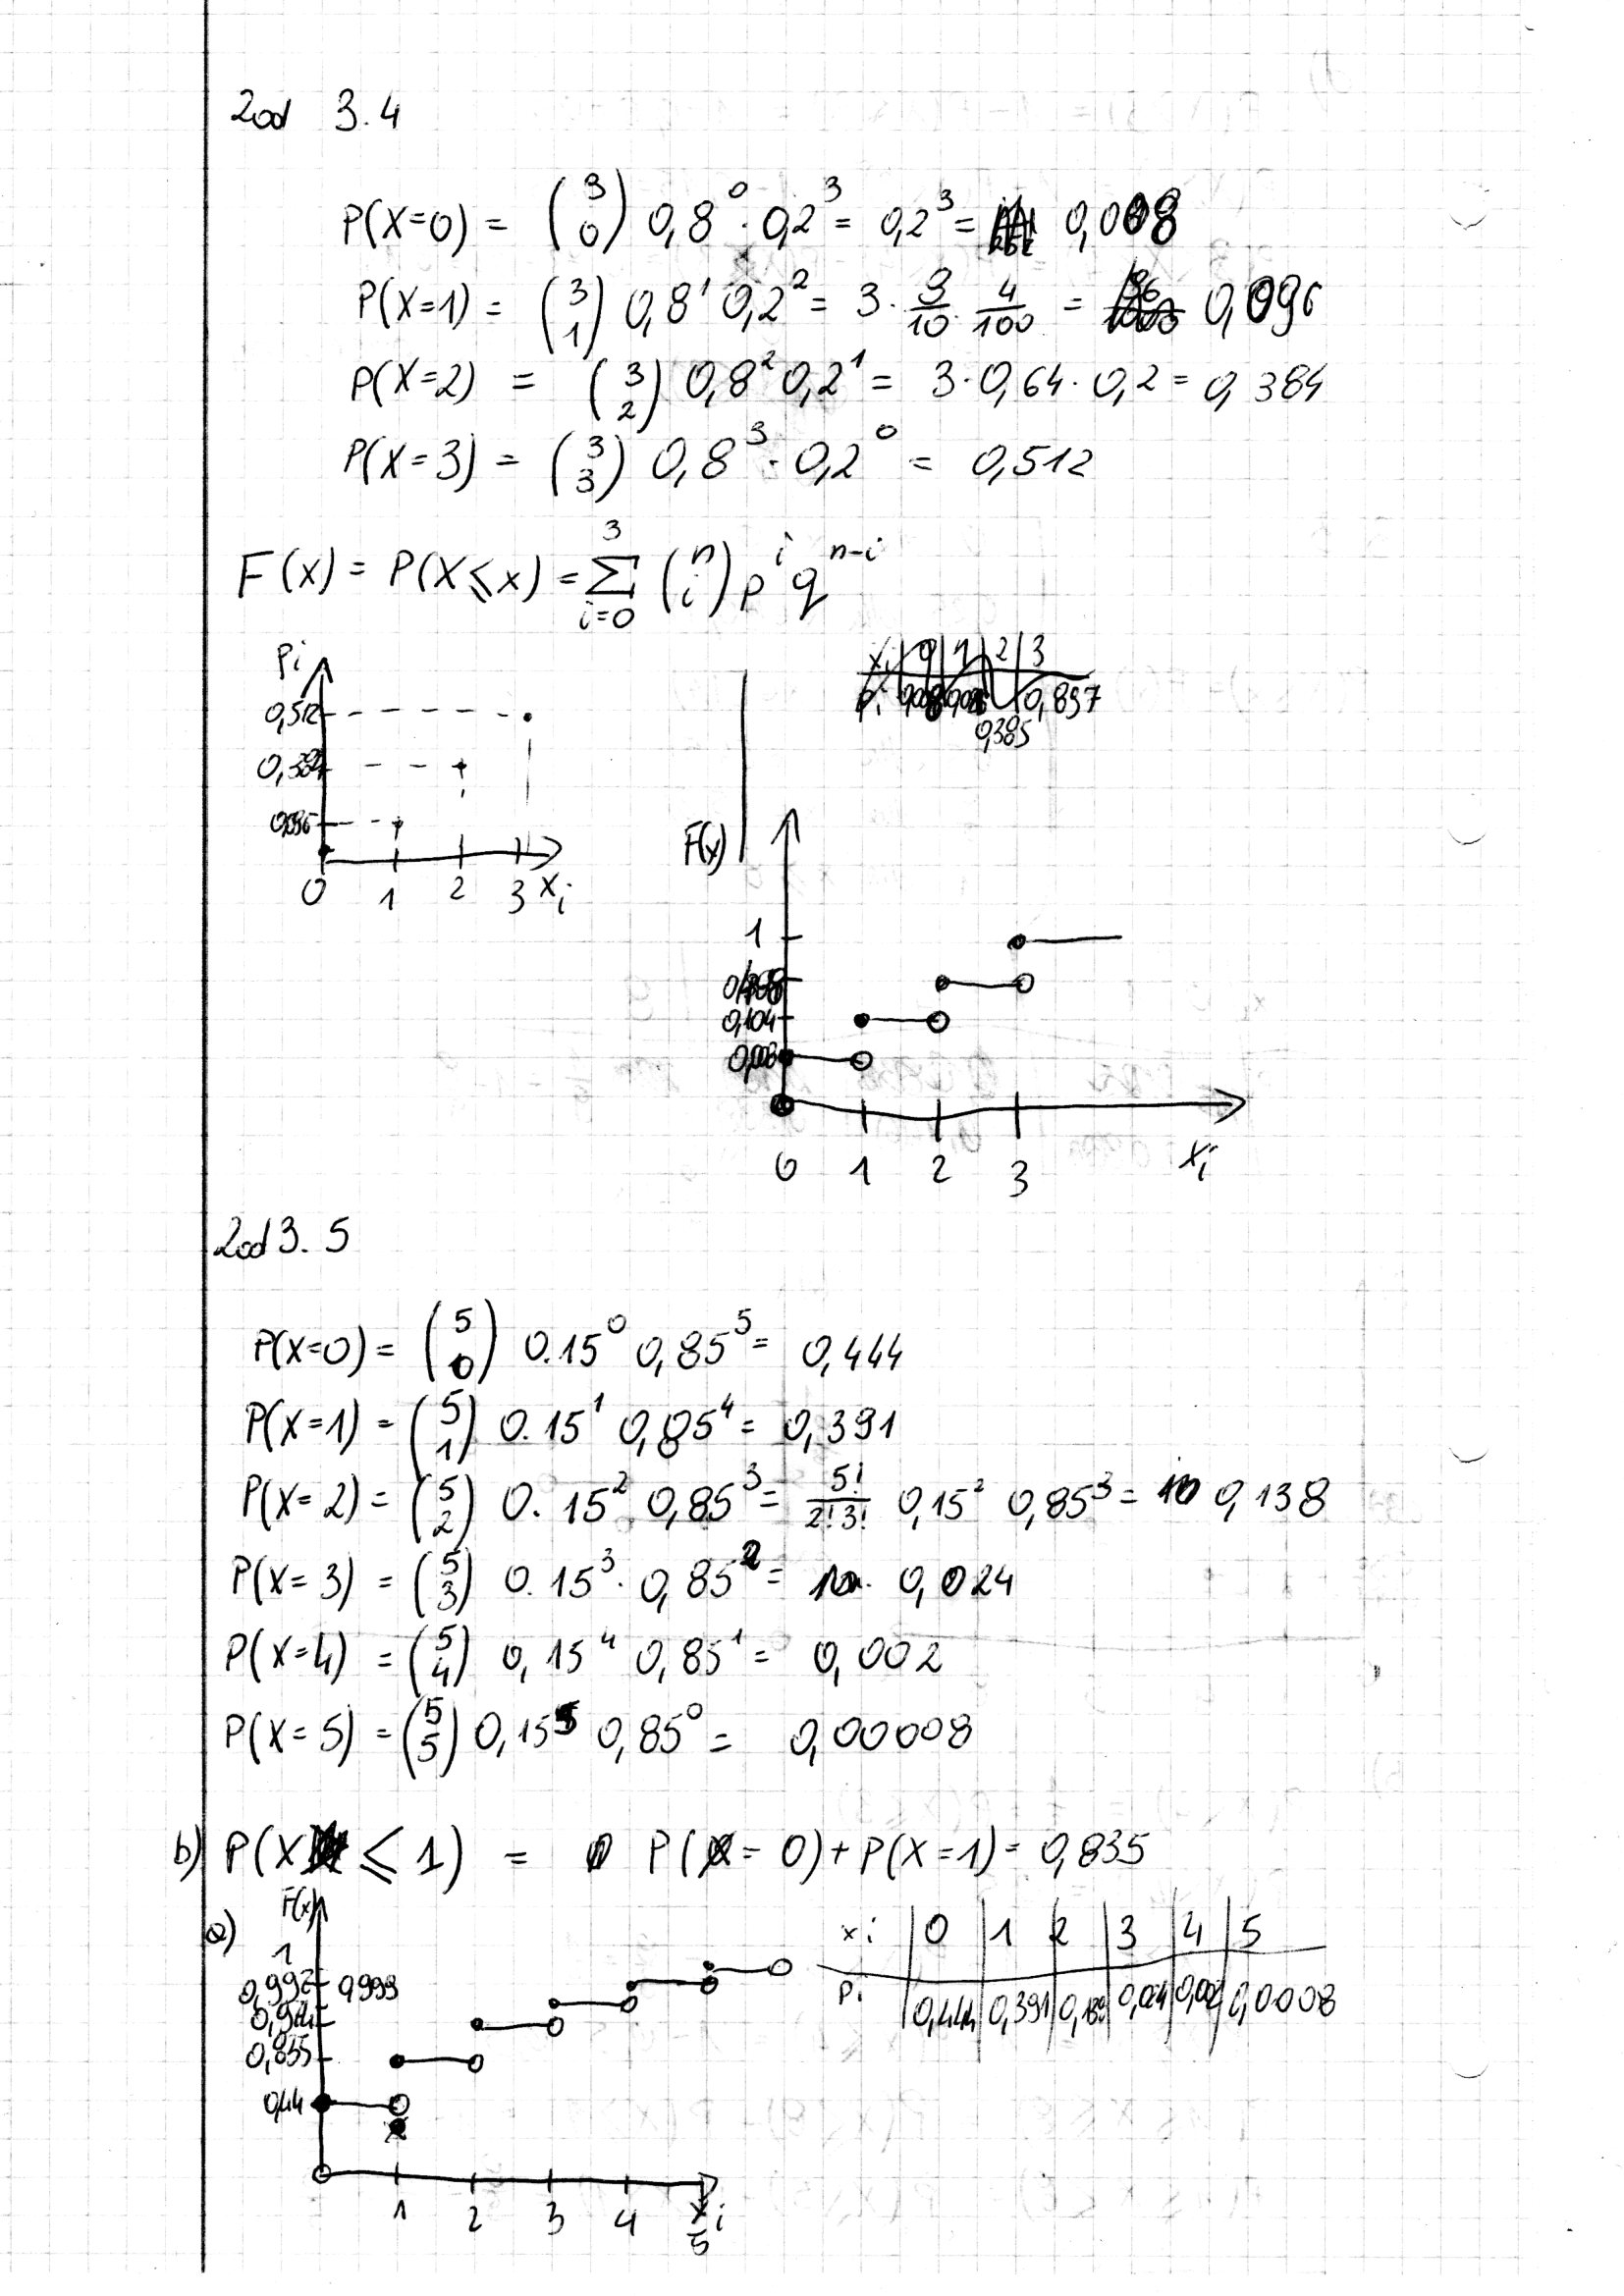 Zad 3.4
P(X=0) = (3 0) 0,8^0 · 0,2^3 = 0,2^3 = 0,008
P(X=1) = (3 1) 0,8^1 0,2^2 = 3 · 8/10 · 4/100 = 0,096
P(X=2) = (3 2) 0,8^2 0,2^1 = 3·0,64·0,2 = 0,384
P(X=3) = (3 3) 0,8^3 · 0,2^0 = 0,512
F(x) = P(X≤x) = Σ_{i=0}^{3} (n i) p^i q^{n-i}
pi
0,512
0,384
0,096
0 1 2 3 xi
xi 0 1 2 3
pi 0,385 0,897
F(x)
1
0,104
0,008
0 1 2 3 xi
Zad 3.5
P(X=0) = (5 0) 0.15^0 0,85^5 = 0,444
P(X=1) = (5 1) 0.15^1 0,85^4 = 0,391
P(X=2) = (5 2) 0.15^2 0,85^3 = 5!/2!3! 0,15^2 0,85^3 = 0,138
P(X=3) = (5 3) 0.15^3 · 0,85^2 = 0,024
P(X=4) = (5 4) 0,15^4 0,85^1 = 0,002
P(X=5) = (5 5) 0,15^5 0,85^0 = 0,00008
b) P(X ≤ 1) = P(X=0)+P(X=1) = 0,835
a) F(x)
1
0,992 0,999
0,835
0,44
1 2 3 4 5 xi
xi 0 1 2 3 4 5
pi 0,444 0,391 0,024 0,002 0,0008